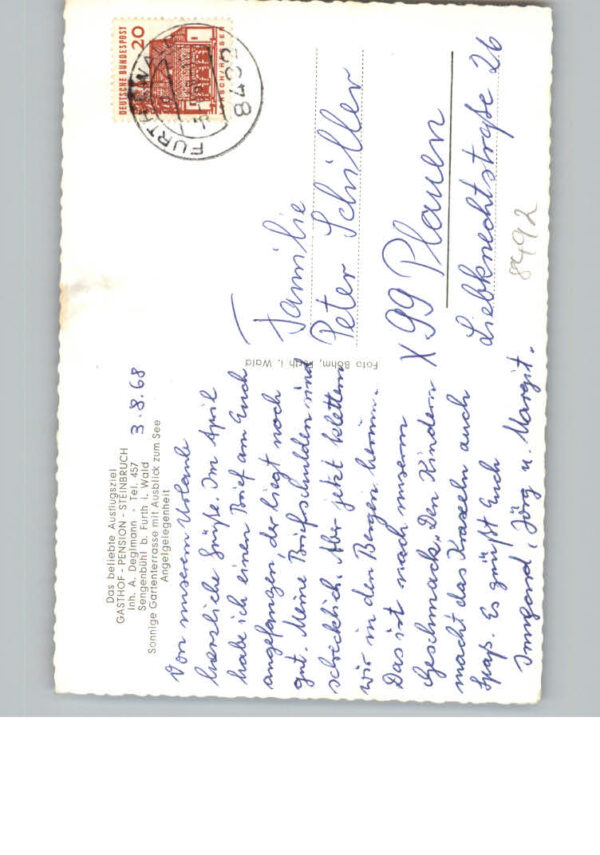 Das beliebte Ausflugsziel
GASTHOF - PENSION - STEINBRUCH
Inh. A. Deglmann - Tel. 457
Sengenbühl b. Furth i. Wald
Sonnige Gartenterrasse mit Ausblick zum See
Angelgelegenheit
3.8.68
Von unserem Urlaub
herzliche Grüße. Im April
habe ich einen Brief an Euch
angefangen, der liegt noch
gut. Meine Briefschulden sind
schrecklich. Aber jetzt klettern
wir in den Bergen herum.
Das ist nach unserm
Geschmack. Den Kindern
macht das Kraxeln auch
Spaß. Es grüßt Euch
Irmgard, Jörg u. Margit.
Foto Böhm, Furth i. Wald
DEUTSCHE BUNDESPOST
20
LORSCH/HESSEN
8492 FURTH I WALD
Familie
Peter Schiller
X 99 Plauen
Liebknechtstraße 26
8492